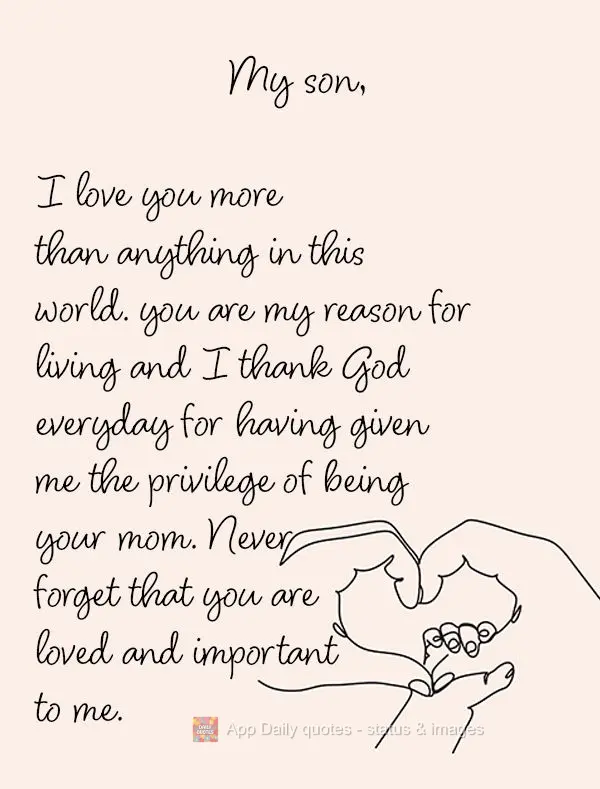 My son,
I love you more
than anything in this
world. you are my reason for
living and I thank God
everyday for having given
me the privilege of being
your mom. Never
forget that you are
loved and important
to me.
DAILY QUOTES
App Daily quotes - status & images